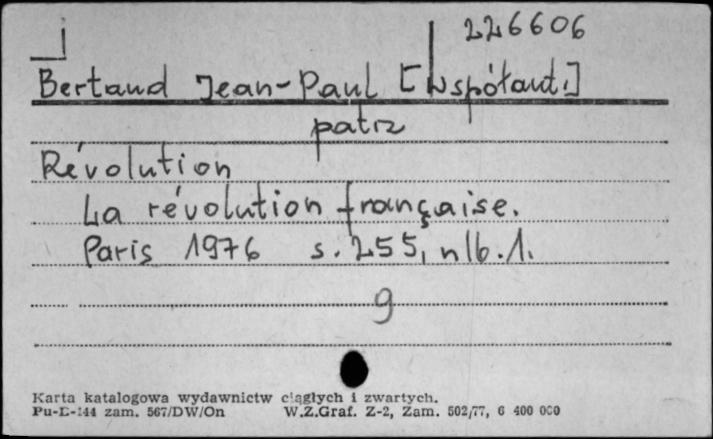 226606
Bertaud Jean-Paul [Współaut.]
patrz
Révolution
La révolution française.
Paris 1976 s. 255, nlb. 1.
9
Karta katalogowa wydawnictw ciągłych i zwartych.
Pu-K-144 zam. 567/DW/On W.Z.Graf. Z-2, Zam. 502/77, 6 400 000